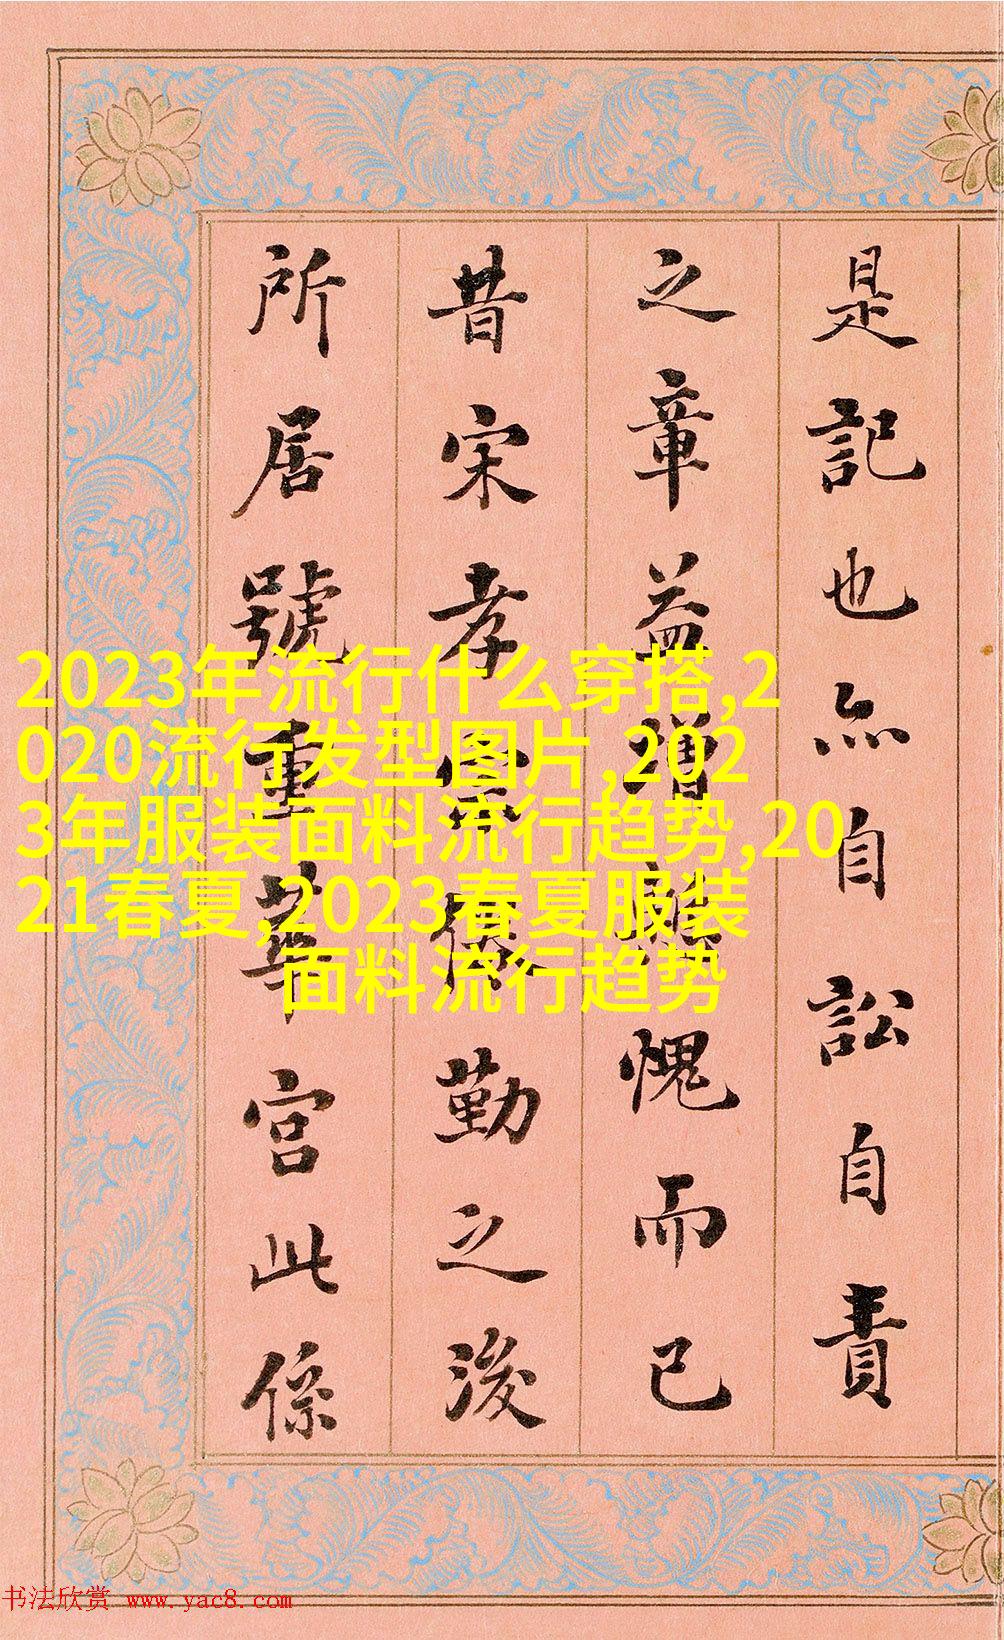 是記也亦自訟自責
之章益增愧而已
昔宋孝宗倦勤之後
所居號重華宮此係
2023年流行什么穿搭,2
020流行发型图片,202
3年服装面料流行趋势,20
21春夏,2023春夏服装
面料流行趋势
书法欣赏 www.yac8.com